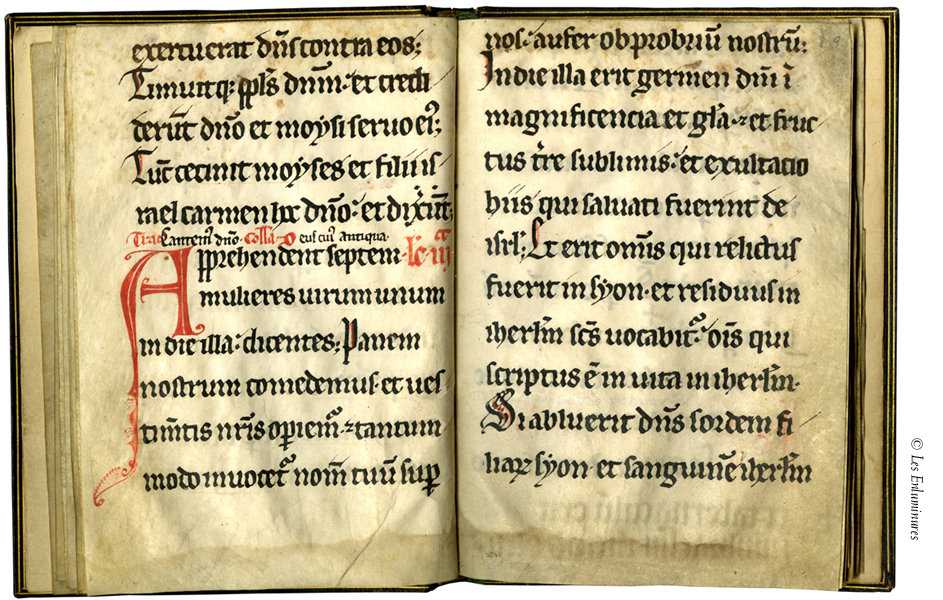 exercuerat dñs contra eos;
Timuitq; ppl's dnm̄· et credi
derūt dn̄o et moysi seruo ei';
Tūc cecinit moyses et filii is
rael carmen hoc dn̄o· et dixer̄t;
Trac Cantem' dn̄o· Coll'a
Apprehendent septem· Lc iiij
mulieres uirum unum
in die illa· dicentes; Panem
nostrum comedemus· et ues
tim̄tis nr̄is op̄iem'· ⁊ tantum
modo inuocet' nom̄ tuū sup
nos· aufer obprobriū nostrū;
In die illa erit germen dn̄i ī
magnificencia et gl'a· et fruc
tus t're sublimis· et exultacio
hiis qui saluati fuerint de
isrl'· Et erit omīs qui relictus
fuerit in syon· et residuus in
iherlm̄ sc̄s uocabit'· oīs qui
scriptus ē in uita in iherlm̄·
Si abluerit dn̄s sordem fi
liaꝝ syon et sanguinē iherlm̄
© Les Enluminures